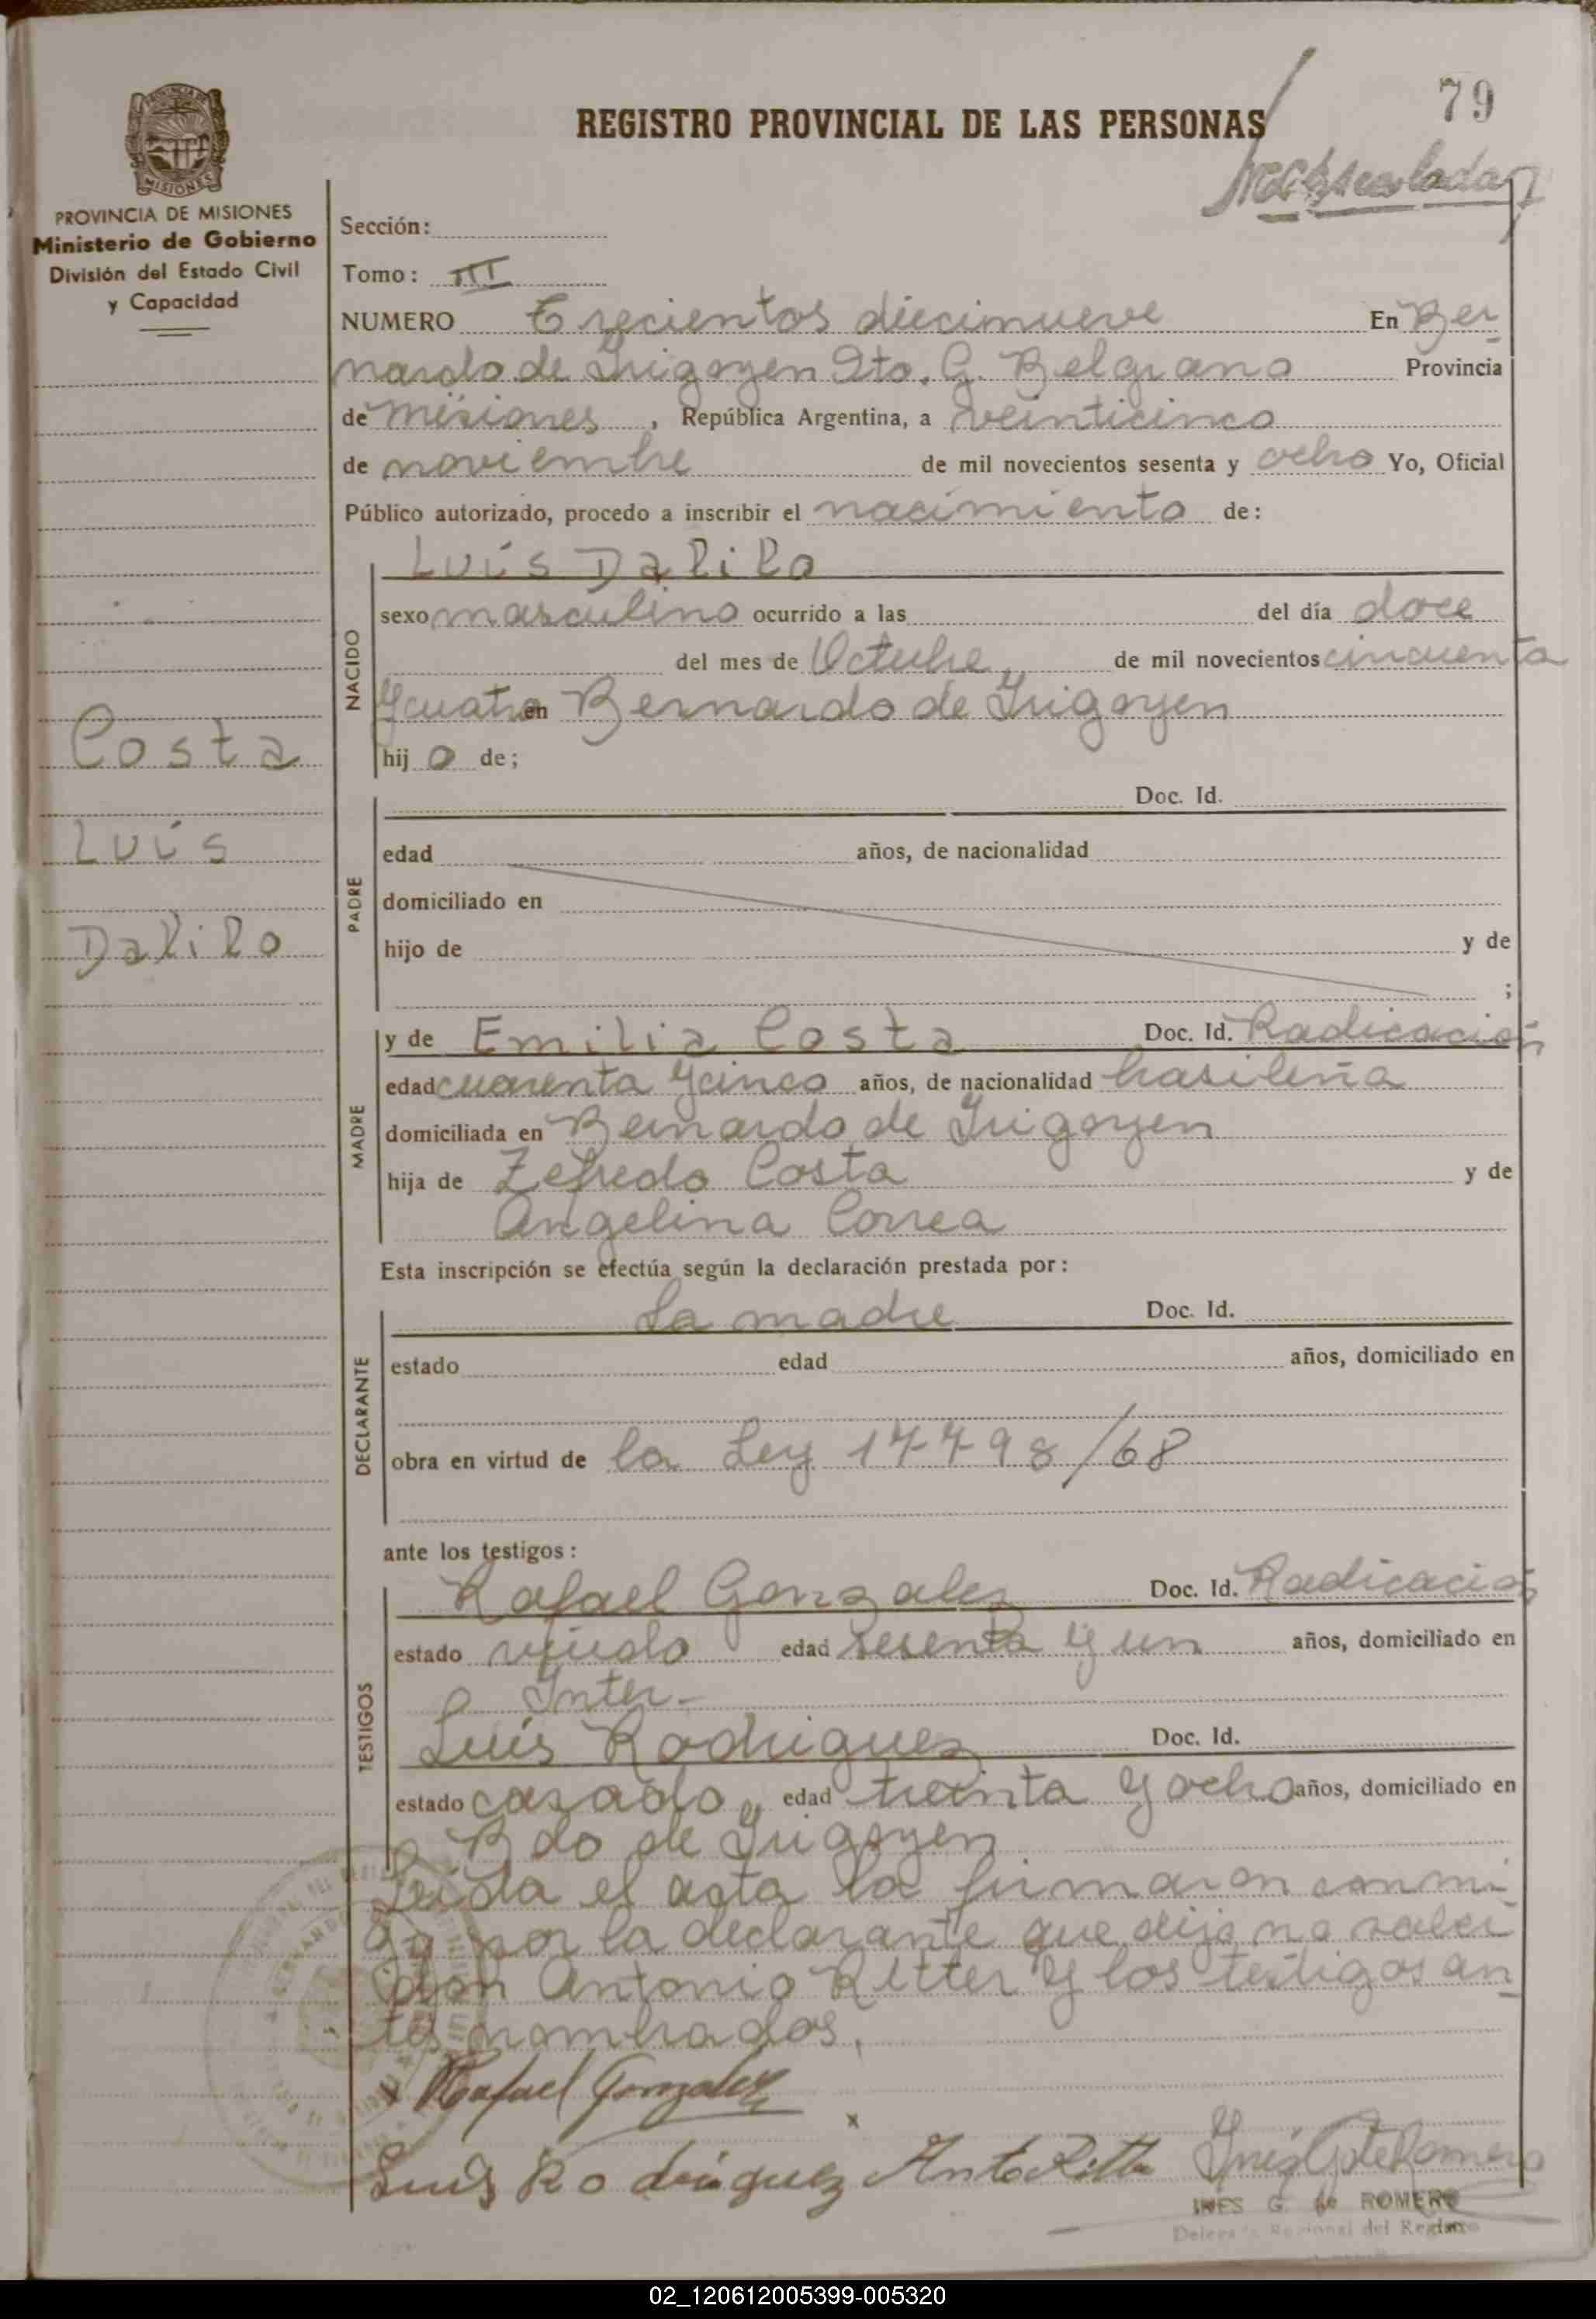 79
REGISTRO PROVINCIAL DE LAS PERSONAS
PROVINCIA DE MISIONES
Ministerio de Gobierno
División del Estado Civil
y Capacidad
Sección:
Tomo: III
NUMERO Trecientos diecinueve En Ber
nardo de Irigoyen Dto. G. Belgrano Provincia
de Misiones, República Argentina, a veinticinco
de noviembre de mil novecientos sesenta y ocho Yo, Oficial
Público autorizado, procedo a inscribir el nacimiento de:
NACIDO
Luis Dalilo
sexo masculino ocurrido a las del día doce
del mes de Octubre de mil novecientos cincuenta
y cuatro en Bernardo de Irigoyen
hijo de;
Costa
Luis
Dalilo
PADRE
Doc. Id.
edad años, de nacionalidad
domiciliado en
hijo de y de
;
MADRE
y de Emilia Costa Doc. Id. Radicación
edad cuarenta y cinco años, de nacionalidad brasileña
domiciliada en Bernardo de Irigoyen
hija de Zefredo Costa y de
Angelina Correa
Esta inscripción se efectúa según la declaración prestada por:
DECLARANTE
La madre Doc. Id.
estado edad años, domiciliado en
obra en virtud de la Ley 17798/68
ante los testigos:
TESTIGOS
Rafael Gonzalez Doc. Id. Radicación
estado viudo edad sesenta y un años, domiciliado en
Inter-
Luis Rodriguez Doc. Id.
estado casado, edad treinta y ocho años, domiciliado en
Bdo de Irigoyen
Leida el acta la firmaron conmi
go por la declarante que dijo no saber
don Antonio Ritter y los testigos an
tes nombrados.
x Rafael Gonzalez
x
Luis Rodriguez Anto Ritter
INES G. de ROMERO
Regional del Registro
02_120612005399-005320